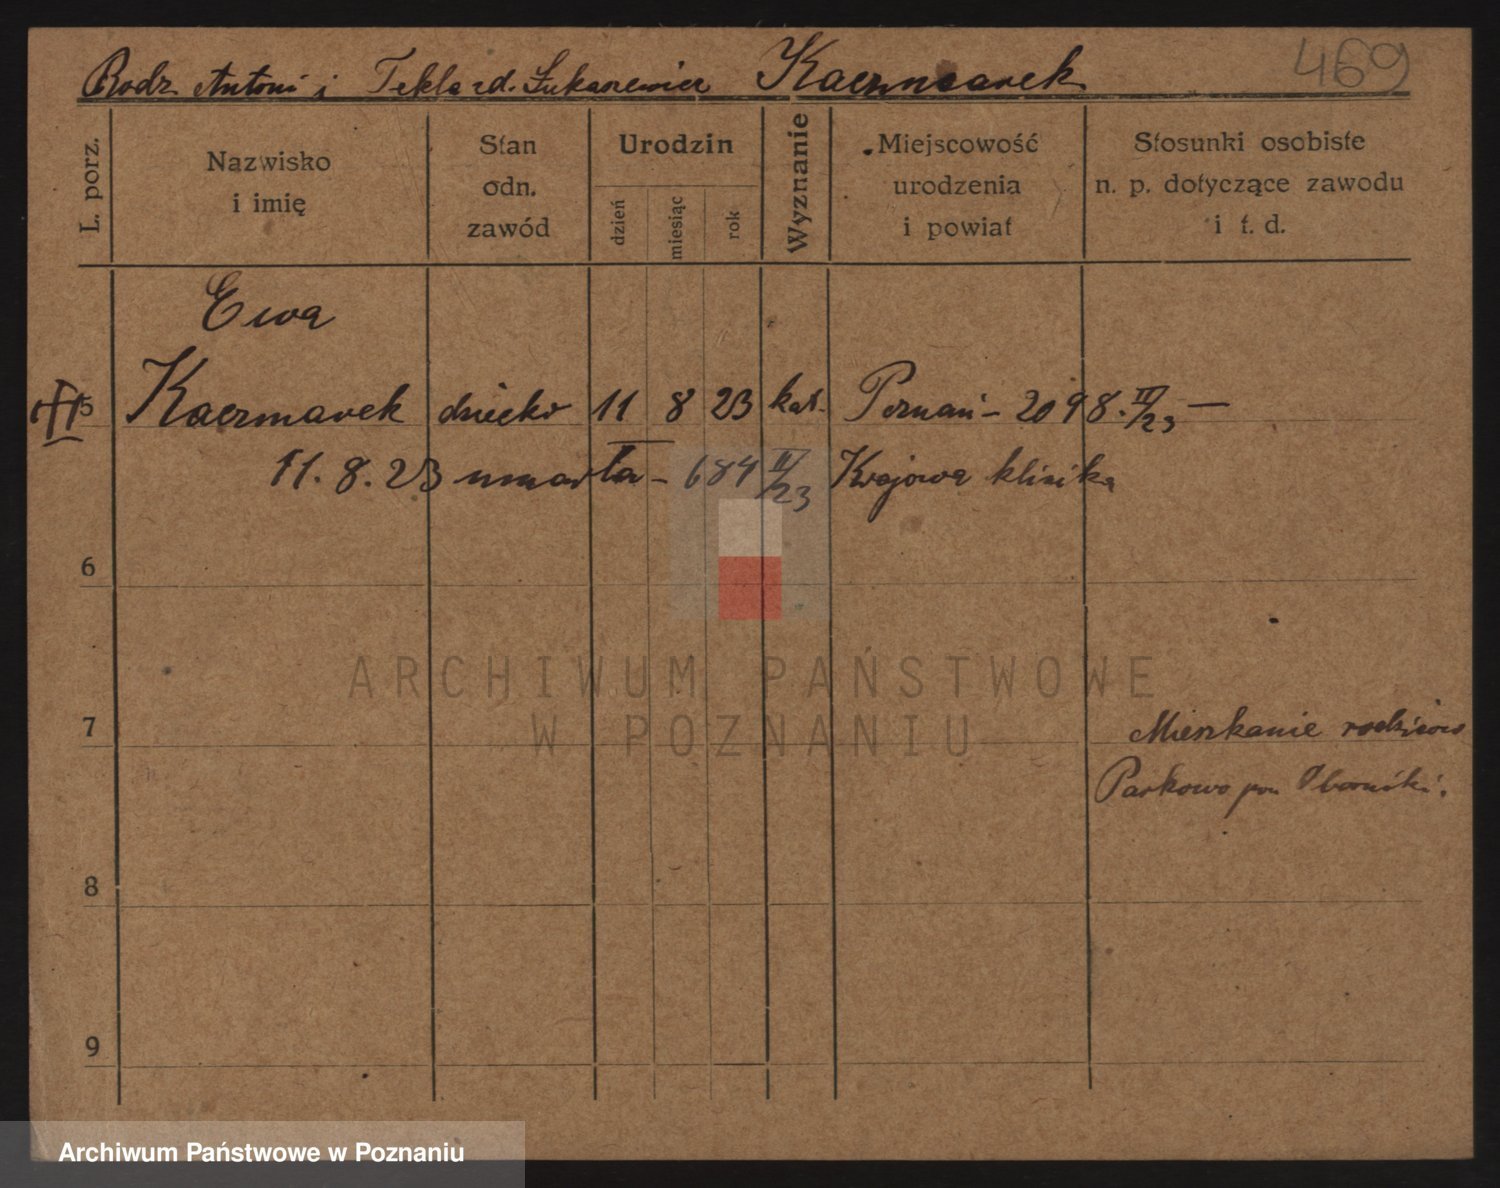 Rodz. Antoni i Tekla rd. Łukaszewicz Kaczmarek 469
L. porz.
Nazwisko
i imię
Stan
odn.
zawód
Urodzin
dzień
miesiąc
rok
Wyznanie
Miejscowość
urodzenia
i powiat
Stosunki osobiste
n. p. dotyczące zawodu
i t. d.
Ewa
5 Kaczmarek dziecko 11 8 23 kat. Poznań - 2098. II/23 —
11. 8. 23 umarła - 684 II/23 Krajowa klinika
6
ARCHIWUM PAŃSTWOWE
W POZNANIU
7
Mieszkanie rodziców
Parkowo pow Oborniki.
8
9
Archiwum Państwowe w Poznaniu